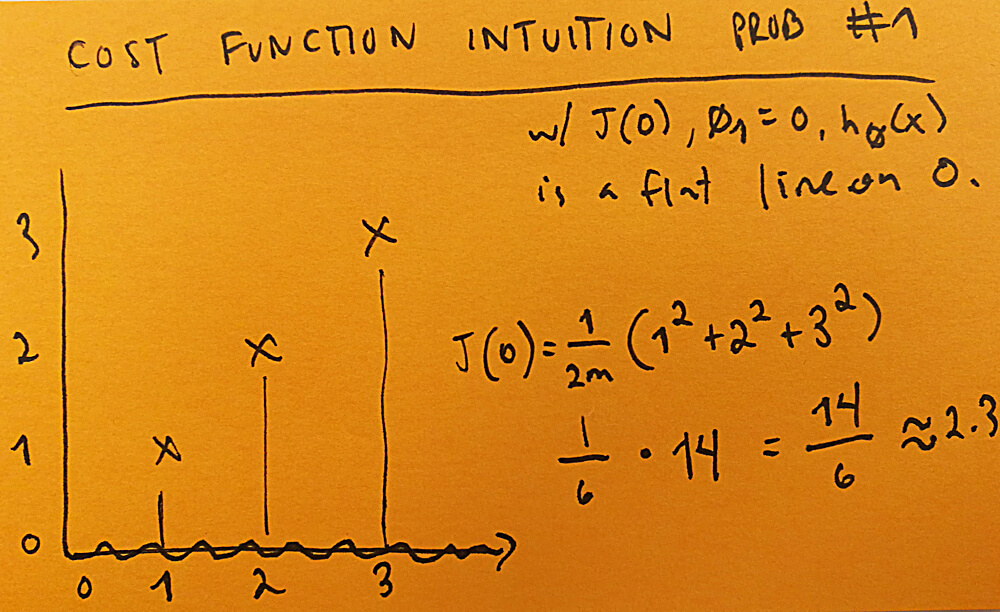 COST FUNCTION INTUITION PROB #1
w/ J(0), Ø1 = 0, hø(x)
is a flat line on 0.
3
2
1
0
X
X
X
0 1 2 3
J(0) = 1/2m (1² + 2² + 3²)
1/6 · 14 = 14/6 ≈ 2.3